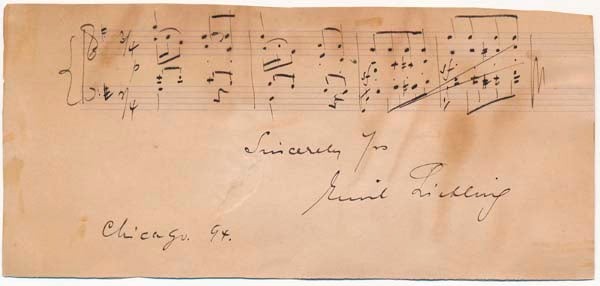 3/4
p
3/4
sf sf
Sincerely Yrs
Emil Liebling
Chicago. 94.